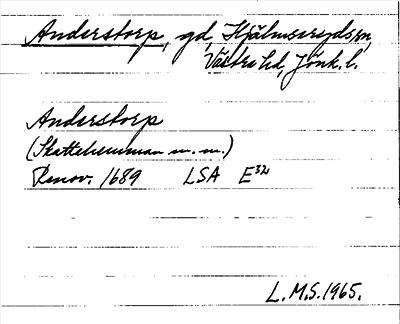 Anderstorp, gd, Kjälmserydsn,
Västra hd, Jönk. l.
Anderstorp
(Skattehemman m. m.)
Renov. 1689 LSA E³²
L. M. S. 1965.